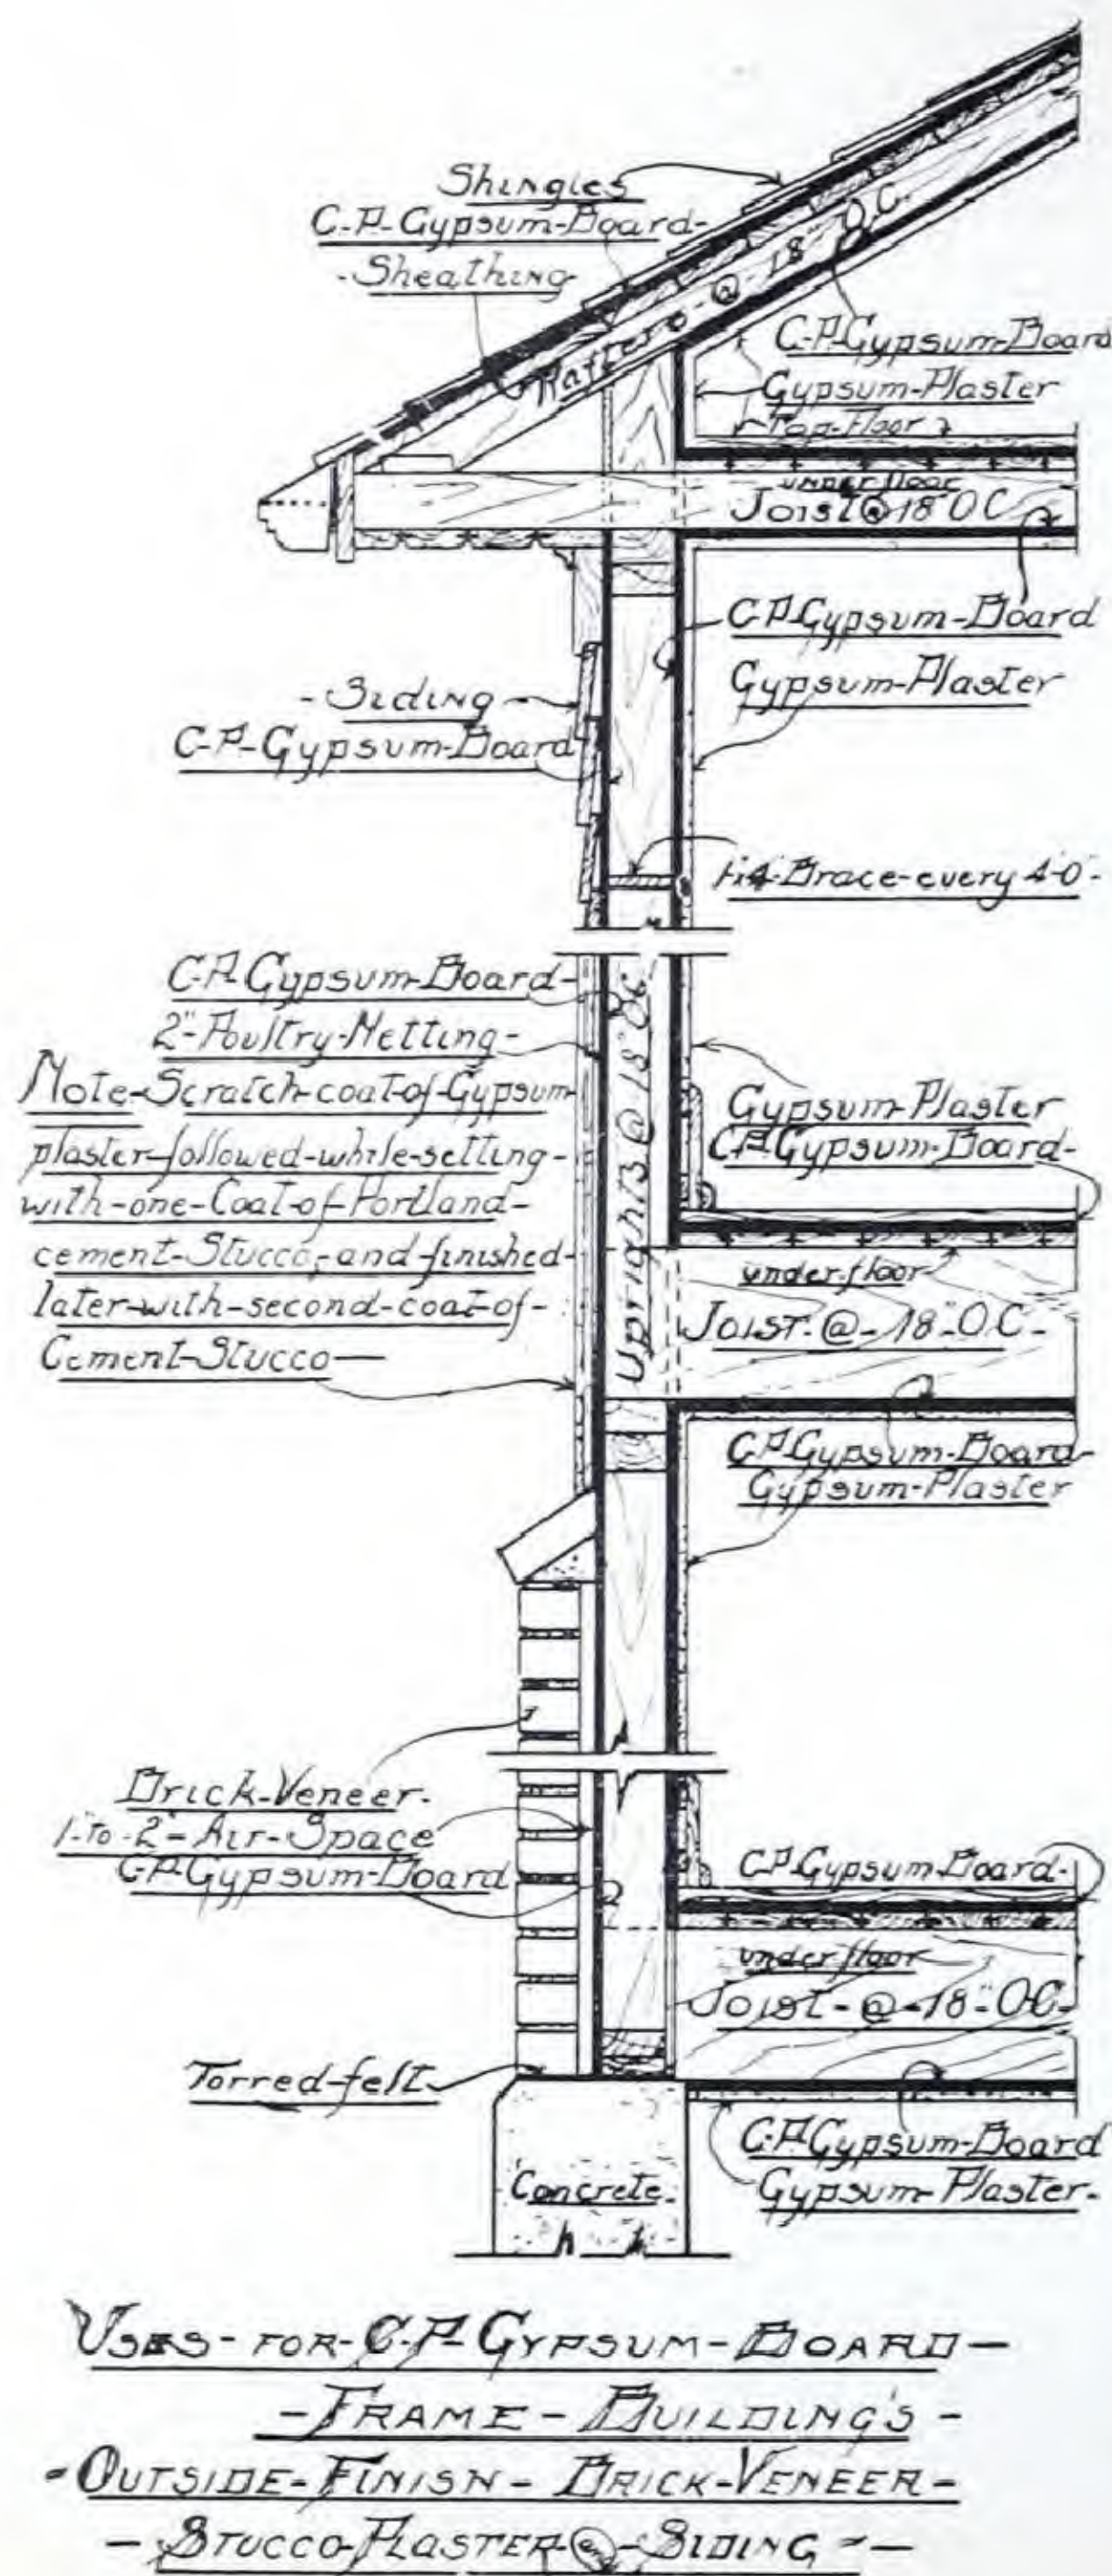 Shingles
C-P-Gypsum-Board-
-Sheathing
Rafters-@-18"O.C.
C-P-Gypsum-Board
Gypsum-Plaster
Top-Floor
under floor
Joist@18"OC
C-P-Gypsum-Board
Gypsum-Plaster
-Siding-
C-P-Gypsum-Board
Brace-every 4'-0"-
C-P-Gypsum-Board-
2"-Poultry-Netting-
Note-Scratch-coat-of-Gypsum-
plaster-followed-while-setting-
with-one-Coat-of-Portland-
cement-Stucco,-and-finished-
later-with-second-coat-of-
Cement-Stucco-
Uprights @ 18" OC
Gypsum-Plaster
C-P-Gypsum-Board-
under-floor
Joist-@-18"-O.C.-
C-P-Gypsum-Board-
Gypsum-Plaster
Brick-Veneer-
1"-to-2"-Air-Space
C-P-Gypsum-Board
C-P-Gypsum-Board-
under floor
Joist-@-18"-O.C.-
Torred-felt
C-P-Gypsum-Board
Gypsum-Plaster-
Concrete
Uses-for-C-P-Gypsum-Board-
-Frame-Building's-
-Outside-Finish-Brick-Veneer-
-Stucco-Plaster-and-Siding-